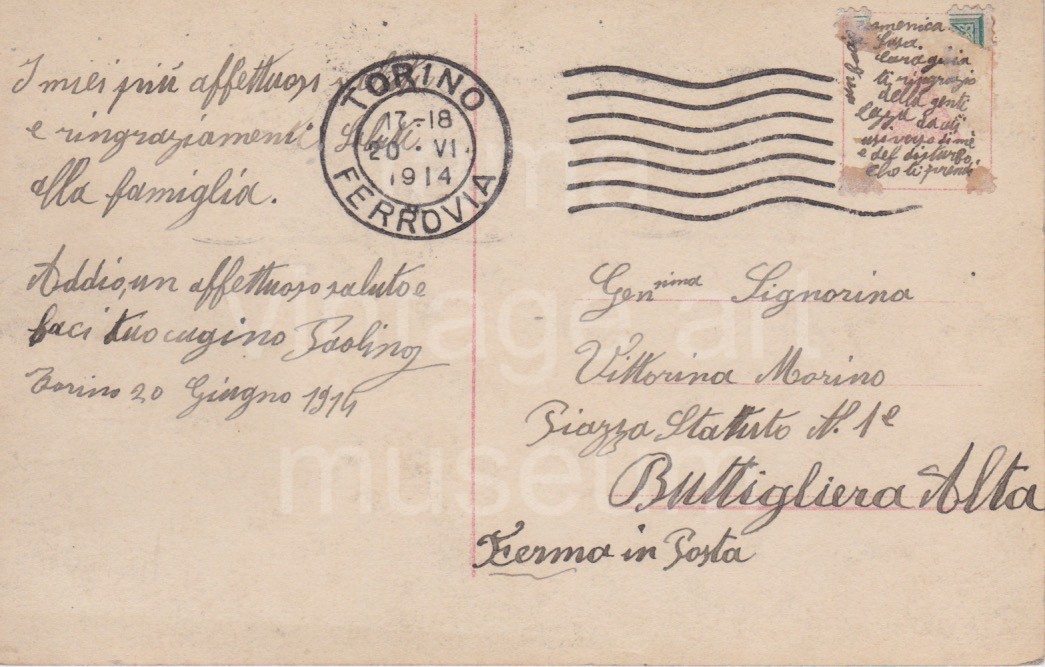 I miei più affettuosi saluti
e ringraziamenti
alla famiglia.
Addio, un affettuoso saluto e
baci tuo cugino Paolino
Torino 20 Giugno 1914
TORINO
17-18
20 VI
1914
FERROVIA
ti ringrazio
della genti
lezza
usi verso di me
e del disturbo
che ti prendi
Gen nima Signorina
Vittorina Morino
Piazza Statuto N. 1e
Buttigliera Alta
Fermo in Posta
Vintage art
museum